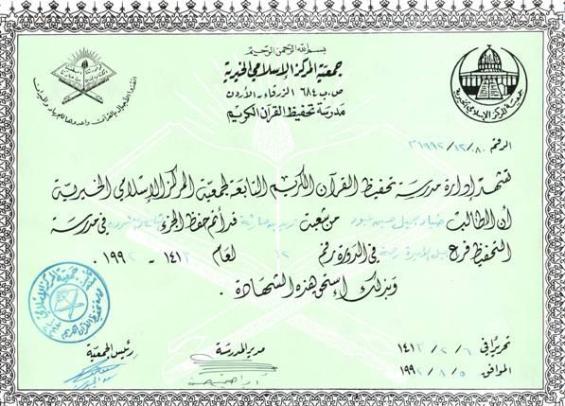 بسم الله الرحمن الرحيم
جمعية المركز الإسلامي الخيرية
ص.ب ٦٨٤ الزرقاء - الأردن
مدرسة تحفيظ القرآن الكريم
جمعية المركز الإسلامي الخيرية
الرقم
تشهد إدارة مدرسة تحفيظ القرآن الكريم التابعة لجمعية المركز الإسلامي الخيرية
أن الطالب من شعبة قد أتم حفظ الجزء في مدرسة
التحفيظ فرع في الدورة رقم ١٢ لعام ١٤١٣ - ١٩٩٢ .
وبذلك إستحق هذه الشهادة .
تحريرا في ٦ / ٢ / ١٤١٣
الموافق ٥ / ٨ / ١٩٩٢
مدير المدرسة
رئيس الجمعية